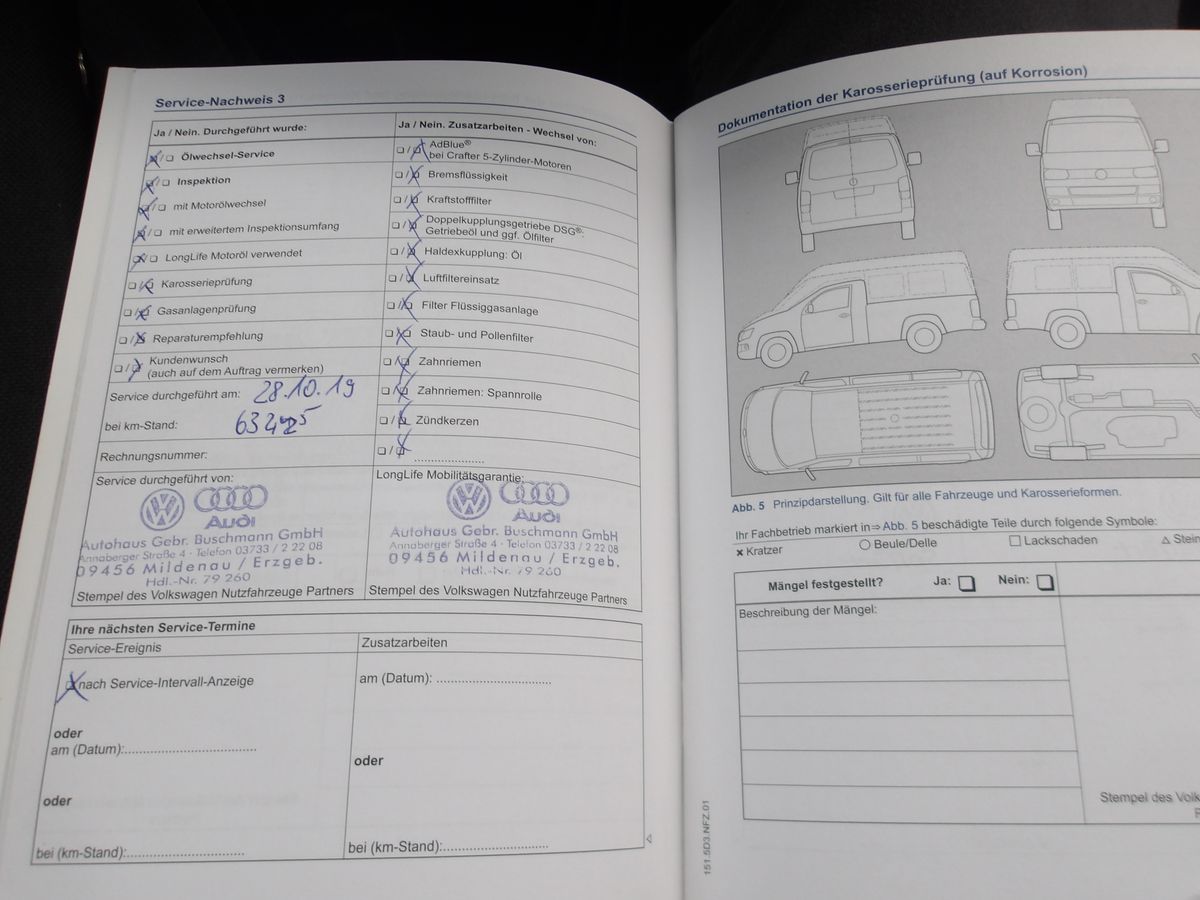 Service-Nachweis 3
Ja / Nein. Durchgeführt wurde:
Ölwechsel-Service
Inspektion
mit Motorölwechsel
mit erweitertem Inspektionsumfang
LongLife Motoröl verwendet
Karosserieprüfung
Gasanlagenprüfung
Reparaturempfehlung
Kundenwunsch
(auch auf dem Auftrag vermerken)
Service durchgeführt am: 28.10.19
bei km-Stand:
Rechnungsnummer:
Ja / Nein. Zusatzarbeiten - Wechsel von:
AdBlue®
bei Crafter 5-Zylinder-Motoren
Bremsflüssigkeit
Kraftstofffilter
Doppelkupplungsgetriebe DSG®:
Getriebeöl und ggf. Ölfilter
Haldexkupplung: Öl
Luftfiltereinsatz
Filter Flüssiggasanlage
Staub- und Pollenfilter
Zahnriemen
Zahnriemen: Spannrolle
Zündkerzen
Service durchgeführt von:
Audi
Autohaus Gebr. Buschmann GmbH
Annaberger Straße 4 · Telefon 03733 / 2 22 08
09456 Mildenau / Erzgeb.
Hdl.-Nr. 79 260
Stempel des Volkswagen Nutzfahrzeuge Partners
LongLife Mobilitätsgarantie:
Audi
Autohaus Gebr. Buschmann GmbH
Annaberger Straße 4 · Telefon 03733 / 2 22 08
09456 Mildenau / Erzgeb.
Hdl.-Nr. 79 260
Stempel des Volkswagen Nutzfahrzeuge Partners
Ihre nächsten Service-Termine
Service-Ereignis
nach Service-Intervall-Anzeige
oder
am (Datum):
oder
bei (km-Stand):
Zusatzarbeiten
am (Datum):
oder
bei (km-Stand):
Dokumentation der Karosserieprüfung (auf Korrosion)
Abb. 5 Prinzipdarstellung. Gilt für alle Fahrzeuge und Karosserieformen.
Ihr Fachbetrieb markiert in⇒ Abb. 5 beschädigte Teile durch folgende Symbole:
× Kratzer ○ Beule/Delle □ Lackschaden △ Stein
Mängel festgestellt? Ja: Nein:
Beschreibung der Mängel:
Stempel des Volk
151.5D3.NFZ.01